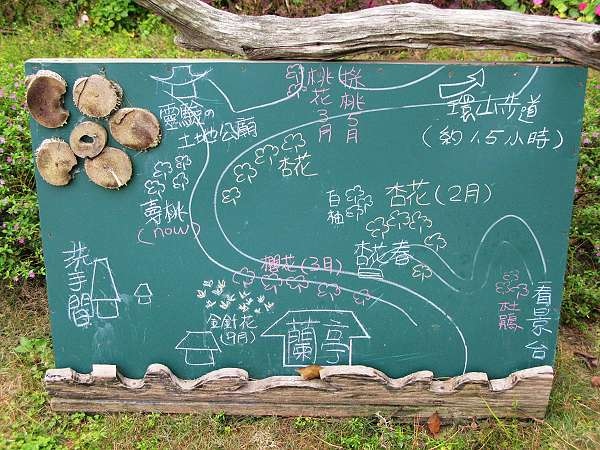 靈驗の
土地公廟
桃花3月
採桃5月
環山步道
(約1.5小時)
杏花
壽桃
(now)
白柚
杏花(2月)
杏花春
洗手間
櫻花(3月)
金針花
(9月)
蘭亭
杜鵑
看景台